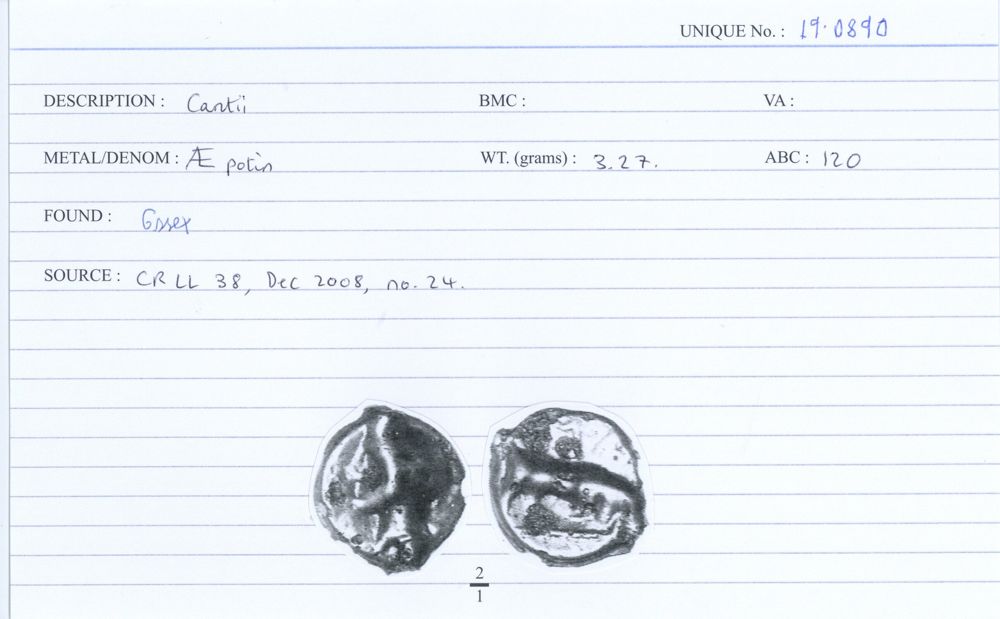 UNIQUE No. : 19.0890
DESCRIPTION : Cantii BMC : VA :
METAL/DENOM : Æ potin WT. (grams) : 3.27. ABC : 120
FOUND : Essex
SOURCE : CR LL 38, Dec 2008, no. 24.
2
1